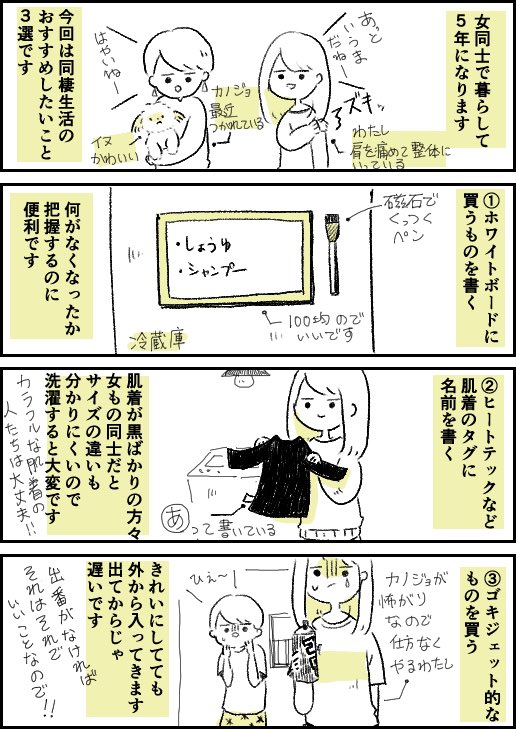 女同士で暮らして
5年になります
あっと
いうま
だうねー
はやいねー
カノジョ
最近
つかれている
ズキッ
わたし
肩を痛めて整体に
いっている
イヌ
かわいい
今回は同棲生活の
おすすめしたいこと
3選です
①ホワイトボードに
買うものを書く
磁石で
くっつく
ペン
・しょうゆ
・シャンプー
100均ので
いいです
冷蔵庫
何がなくなったか
把握するのに
便利です
②ヒートテックなど
肌着のタグに
名前を書く
あって書いている
肌着が黒ばかりの方々
女もの同士だと
サイズの違いも
分かりにくいので
洗濯すると大変です
カラフルな肌着の
人たちは大丈夫!!
③ゴキジェット的な
ものを買う
カノジョが
怖がり
なので
仕方なく
やるわたし
ひぇ〜
きれいにしてても
外から入ってきます
出てからじゃ
遅いです
出番がなければ
それはそれで
いいことなので!!